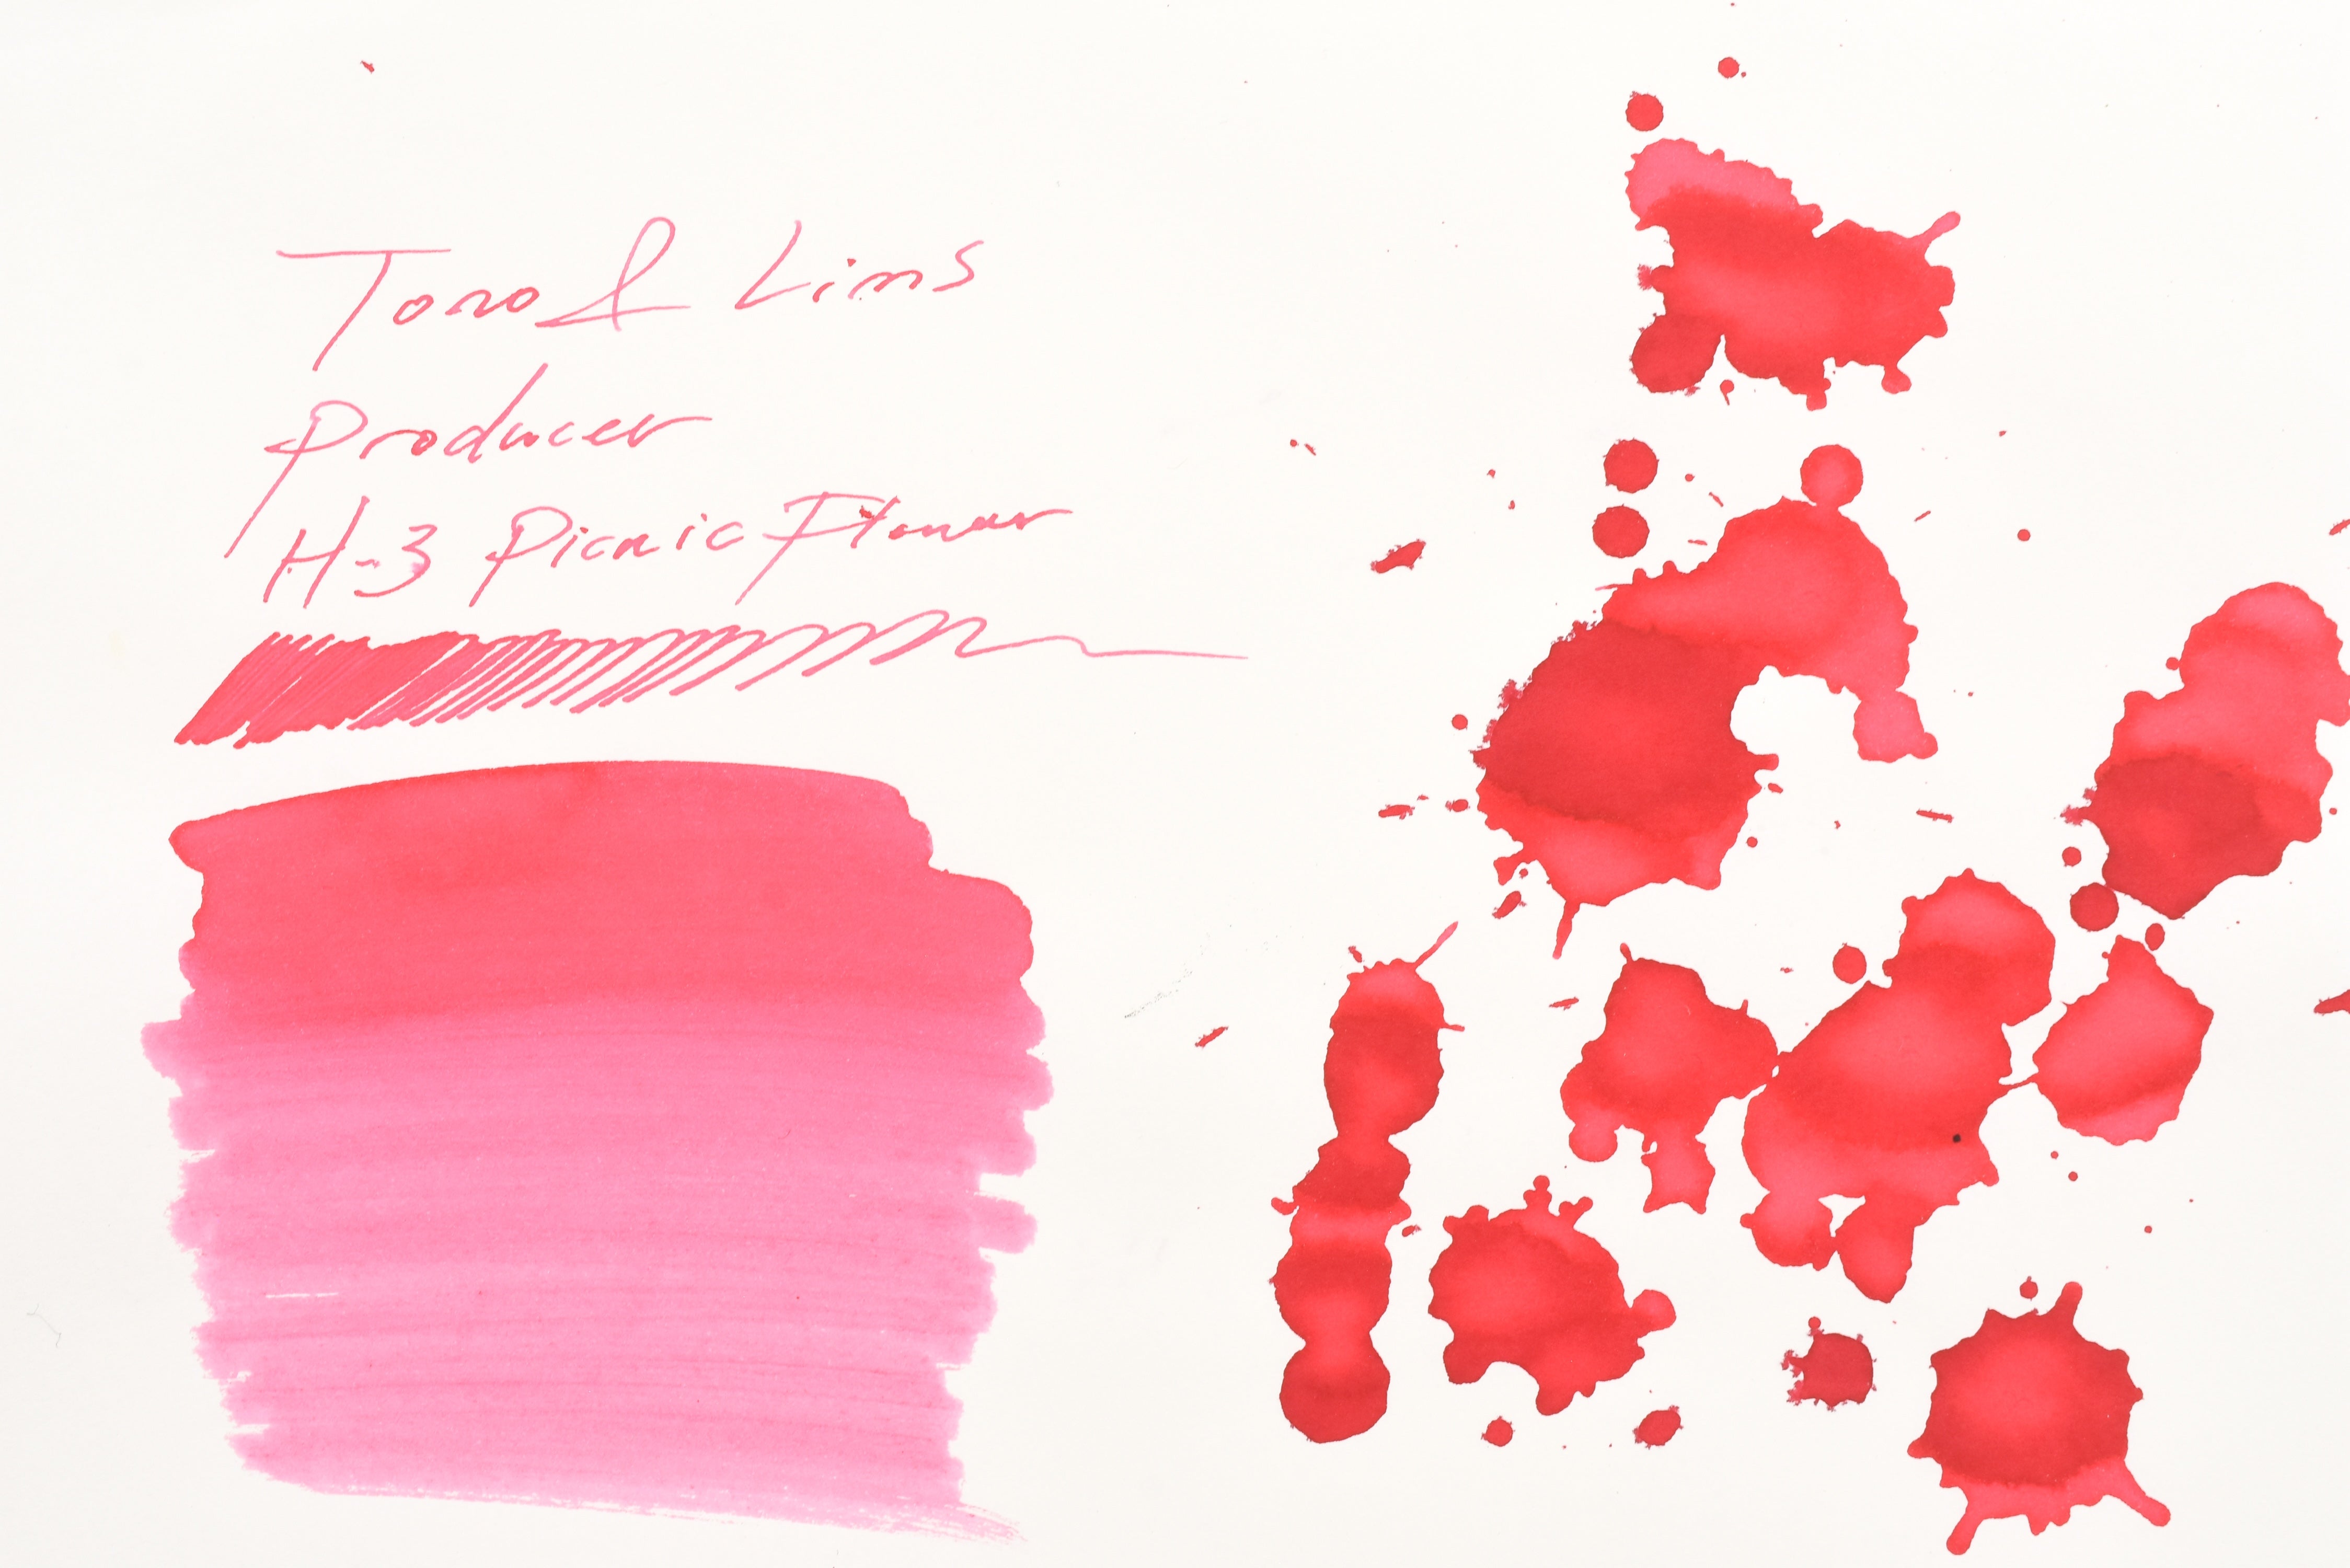 Tono & Lims
Producer
H-3 Picnic Planner